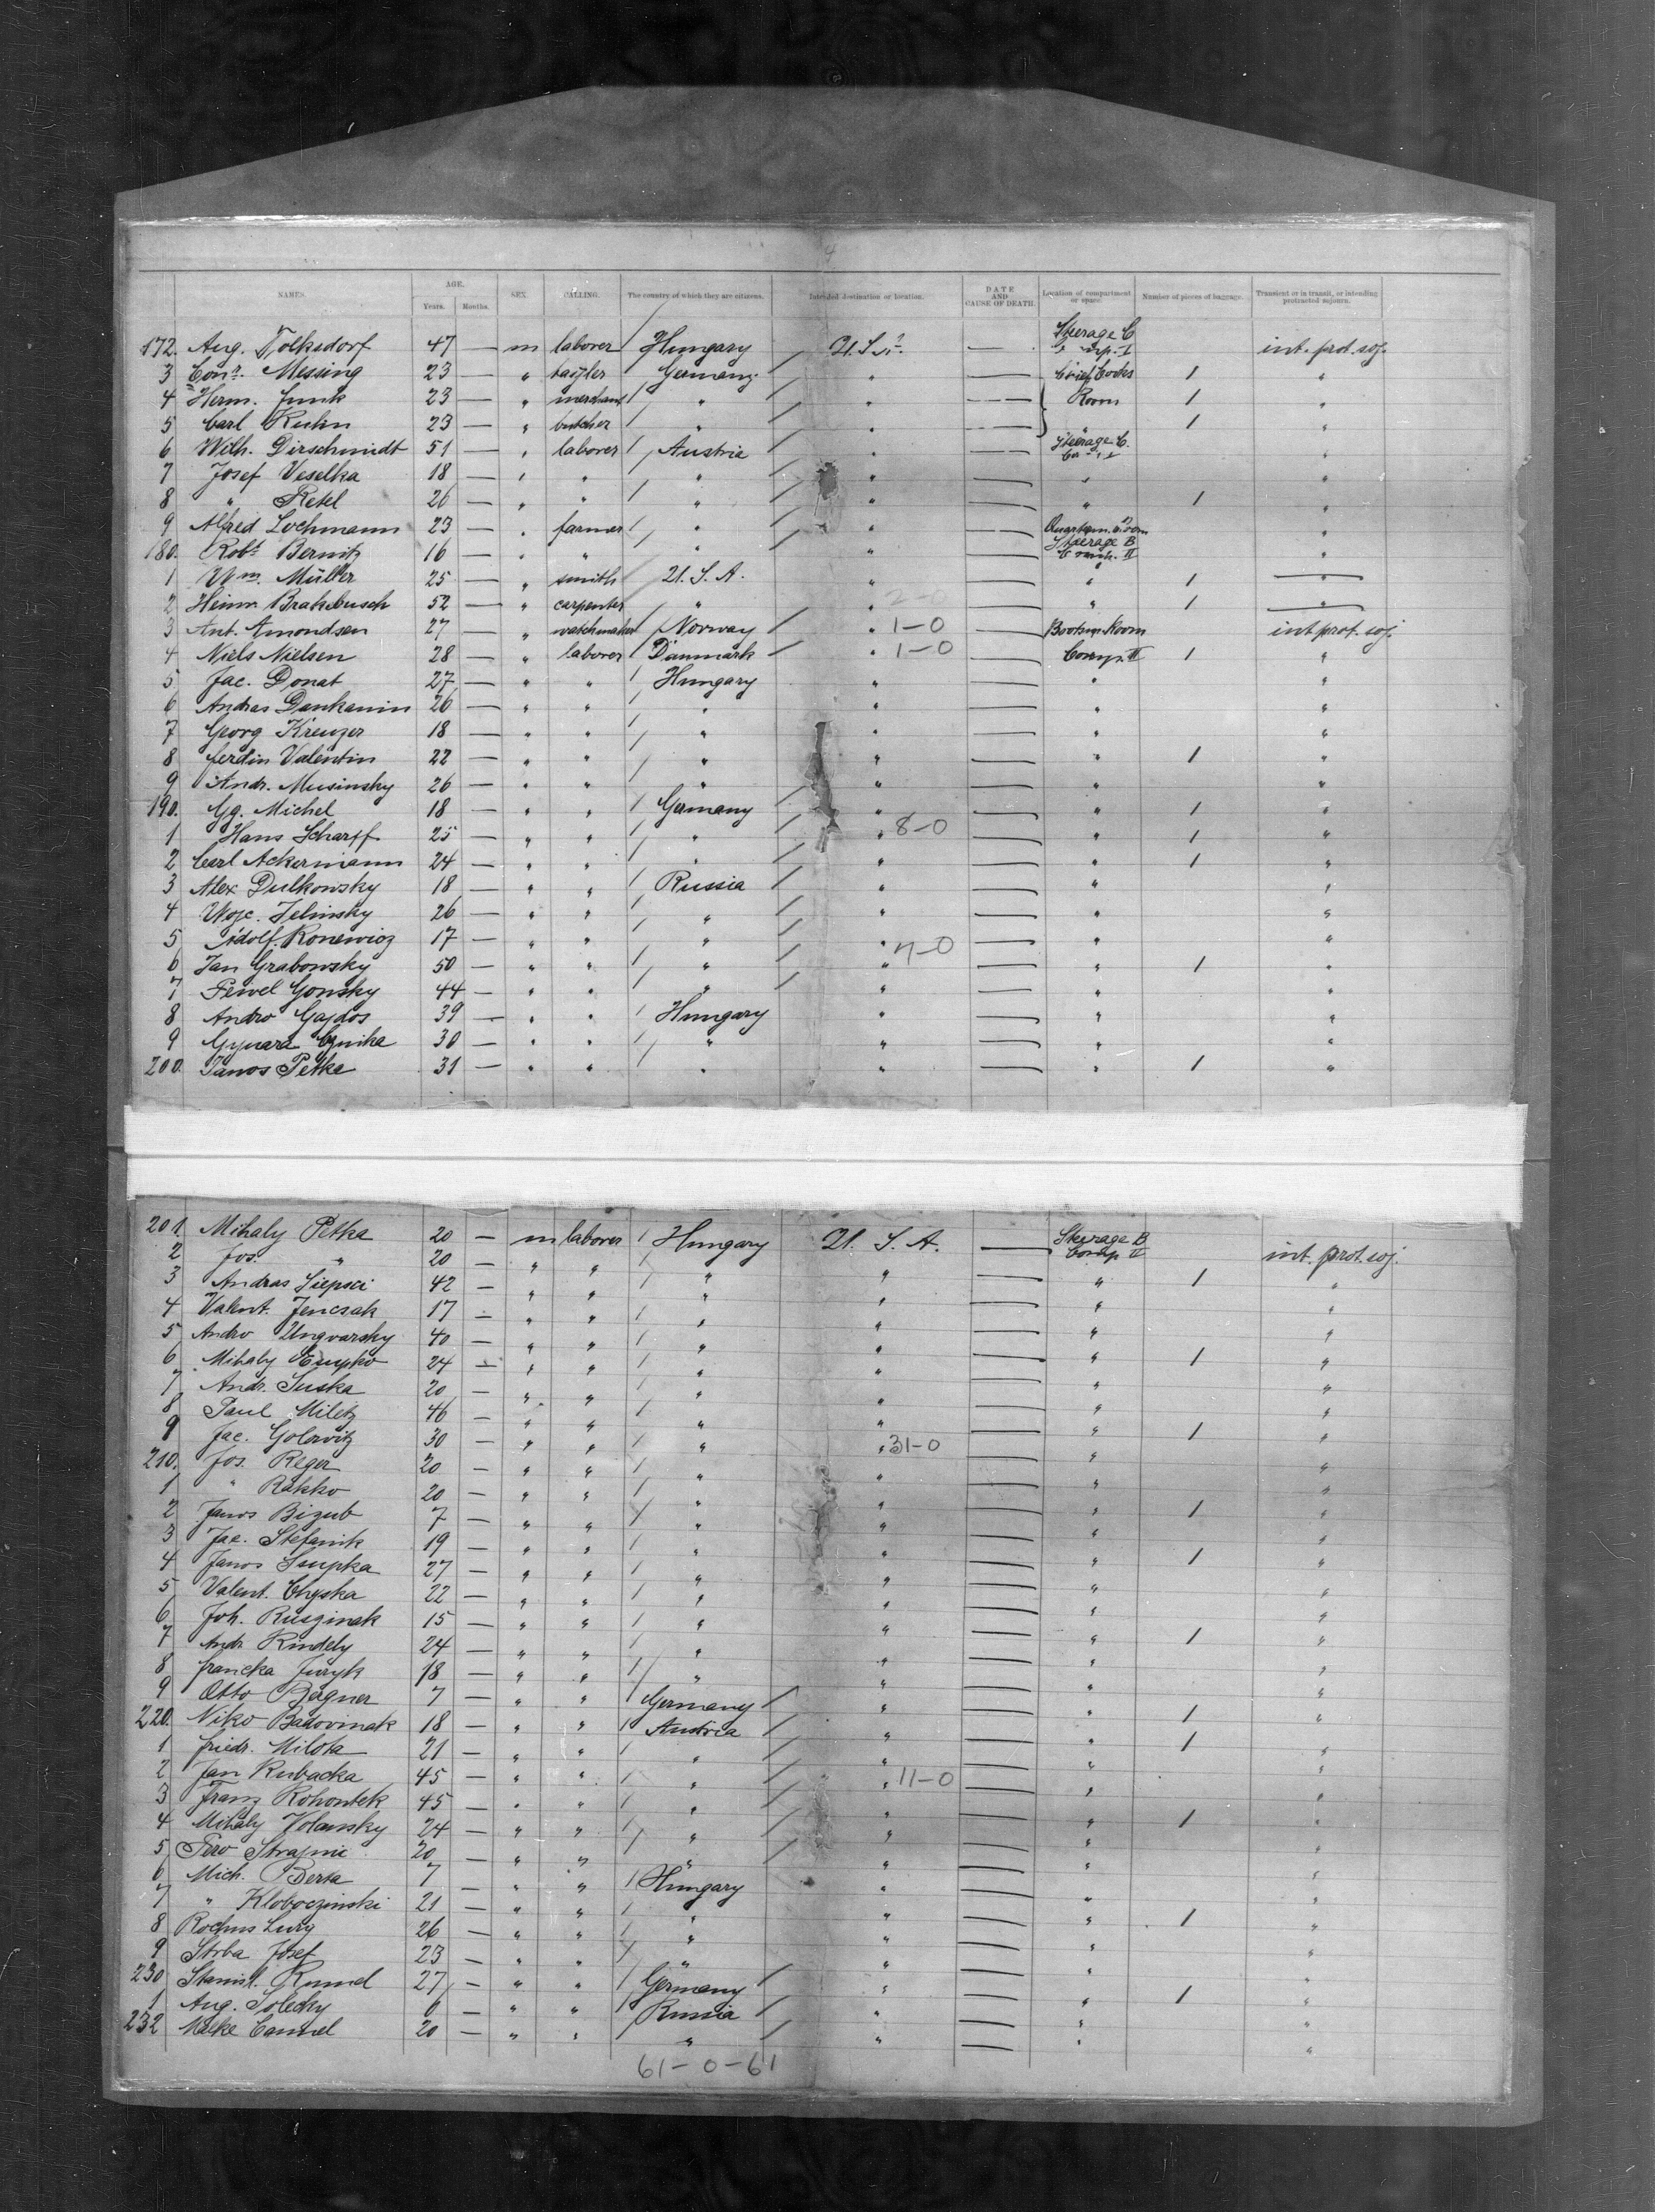 4
NAMES. AGE. Years. Months. SEX. CALLING. The country of which they are citizens. Intended destination or location. DATE AND CAUSE OF DEATH. Location of compartment or space. Number of pieces of baggage. Transient or in transit, or intending protracted sojourn.
172. Aug. Tolksdorf 47 — m laborer Hungary U.S. — Steerage C int. prot. soj.
3 Conr. Messing 23 — " Germany " — 1 "
4 Herm. Junk 23 — " merchant " " — Room 1 "
5 Carl Kuhn 23 — " butcher " " — 1 "
6 Wilh. Dirschmidt 51 — " laborer Austria " — Steerage C. "
7 Josef Veselka 18 — " " " " — " "
8 " Retel 26 — " " " " — " 1 "
9 Alfred Lochmann 23 — " farmer " " — "
180. Robt. Bernitz 16 — " " " " — Steerage B Comp. II "
1 Wm. Müller 25 — " smith U.S.A. " — " 1 "
2 Heinr. Brakebusch 52 — " carpenter " " 2-0 — " 1 "
3 Ant. Amondsen 27 — " watchmaker Norway " 1-0 — Bootsm. Room int. prot. soj.
4 Niels Nielsen 28 — " laborer Danmark " 1-0 — Comp. II 1 "
5 Jac. Donat 27 — " " Hungary " — " "
6 Andras Dankanin 26 — " " " " — " "
7 Georg Kreuzer 18 — " " " " — " "
8 Ferdin Valentin 22 — " " " " — " 1 "
9 Andr. Musinsky 26 — " " " " — " "
190. Gg. Michel 18 — " " Germany " — " 1 "
1 Hans Scharff 25 — " " " " 8-0 — " 1 "
2 Carl Ackermann 24 — " " " " — " 1 "
3 Alex Dulkowsky 18 — " " Russia " — " "
4 Wojc. Jelinsky 26 — " " " " — " "
5 Adolf Ronewicz 17 — " " " " 7-0 — " "
6 Jan Grabowsky 50 — " " " " — " 1 "
7 Pewel Gonsky 44 — " " " " — " "
8 Andro Gajdos 39 — " " Hungary " — " "
9 30 — " " " " — " "
200. Janos Petka 31 — " " " " — " 1 "
201. Mihaly Petka 20 — m laborer Hungary U.S.A. — Steerage B Comp II int. prot. soj.
2 Jos. " 20 — " " " " — " 1 "
3 Andras 42 — " " " " — " "
4 Valent. Jencsak 17 — " " " " — " "
5 Andro Ungvarsky 40 — " " " " — " 1 "
6 Mihaly 24 — " " " " — " "
7 Andr. Suska 20 — " " " " — " "
8 Paul Miletz 46 — " " " " — " 1 "
9 Jac. Golowitz 30 — " " " " 31-0 — " "
210. Jos. Reger 20 — " " " " — " "
1 " Rakko 20 — " " " " — " 1 "
2 Janos Bizub 7 — " " " " — " "
3 Jac. Stefanik 19 — " " " " — " 1 "
4 Janos Supka 27 — " " " " — " "
5 Valent. 22 — " " " " — " "
6 Joh. Ruszinak 15 — " " " " — " 1 "
7 Andr Rindely 24 — " " " " — " "
8 Juryk 18 — " " " " — " "
9 Otto Bergner 7 — " " Germany " — " 1 "
220. Niko Badovinak 18 — " " Austria " — " 1 "
1 Friedr. Milota 21 — " " " " — " "
2 Jan Kubacka 45 — " " " " 11-0 — " "
3 Franz Rohontek 45 — " " " " — " 1 "
4 Mihaly Volansky 24 — " " " " — " "
5 Pero 20 — " " " " — "
6 Mich. Berta 7 — " " Hungary " — " "
7 " Kloboczinski 21 — " " " " — " 1 "
8 Rochus Lury 26 — " " " " — " "
9 Strba Josef 23 — " " " " — " "
230 Stanisl. 27 — " " Germany " — " 1 "
1 Aug. Solecky 6 — " " Russia " — " "
232 20 — " " " " — " "
61-0-61